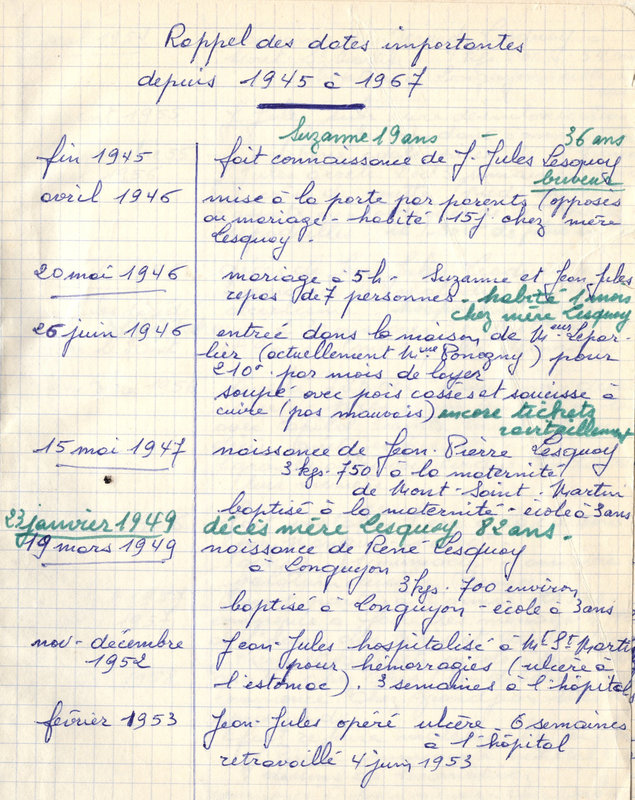 Rappel des dates importantes
depuis 1945 à 1967
Suzanne 19 ans - 36 ans
fin 1945 fait connaissance de J. Jules Lesquoy
buveur
avril 1946 mise à la porte par parents (opposés
au mariage - habité 15 j. chez mère
Lesquoy.
20 mai 1946 mariage à 5h - Suzanne et Jean-Jules
repas de 7 personnes - habité 1 mois
chez mère Lesquoy
26 juin 1946 entrée dans la maison de Meur Lepar-
lier (actuellement Mme Ponogny) pour
210 par mois de loyer
soupé avec pois cassés et saucisse à
cuire (pas mauvais) encore tickets
ravitaillement
15 mai 1947 naissance de Jean-Pierre Lesquoy
3 kgs. 750 à la maternité
de Mont-Saint-Martin
baptisé à la maternité - école à 3 ans
23 janvier 1949 décès mère Lesquoy 82 ans.
19 mars 1949 naissance de René Lesquoy
à Longuyon
3 kgs. 700 environ
baptisé à Longuyon - école à 3 ans
nov - décembre Jean-Jules hospitalisé à Mt St Marti
1952 pour hémorragies (ulcère à
l'estomac). 3 semaines à l'hôpital
février 1953 Jean-Jules opéré ulcère - 6 semaines
à l'hôpital
retravaillé 4 juin 1953